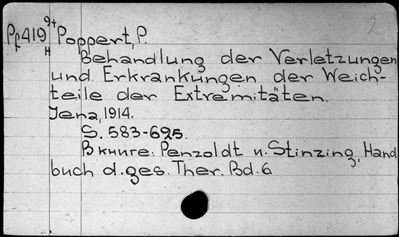 Pf419 9+ Poppert, P.
H
Behandlung der Verletzungen
und Erkrankungen der Weich-
teile der Extremitäten.
Jena, 1914.
S. 583-695.
В книге: Penzoldt u. Stinzing, Hand
buch d. ges. Ther. Bd. 6